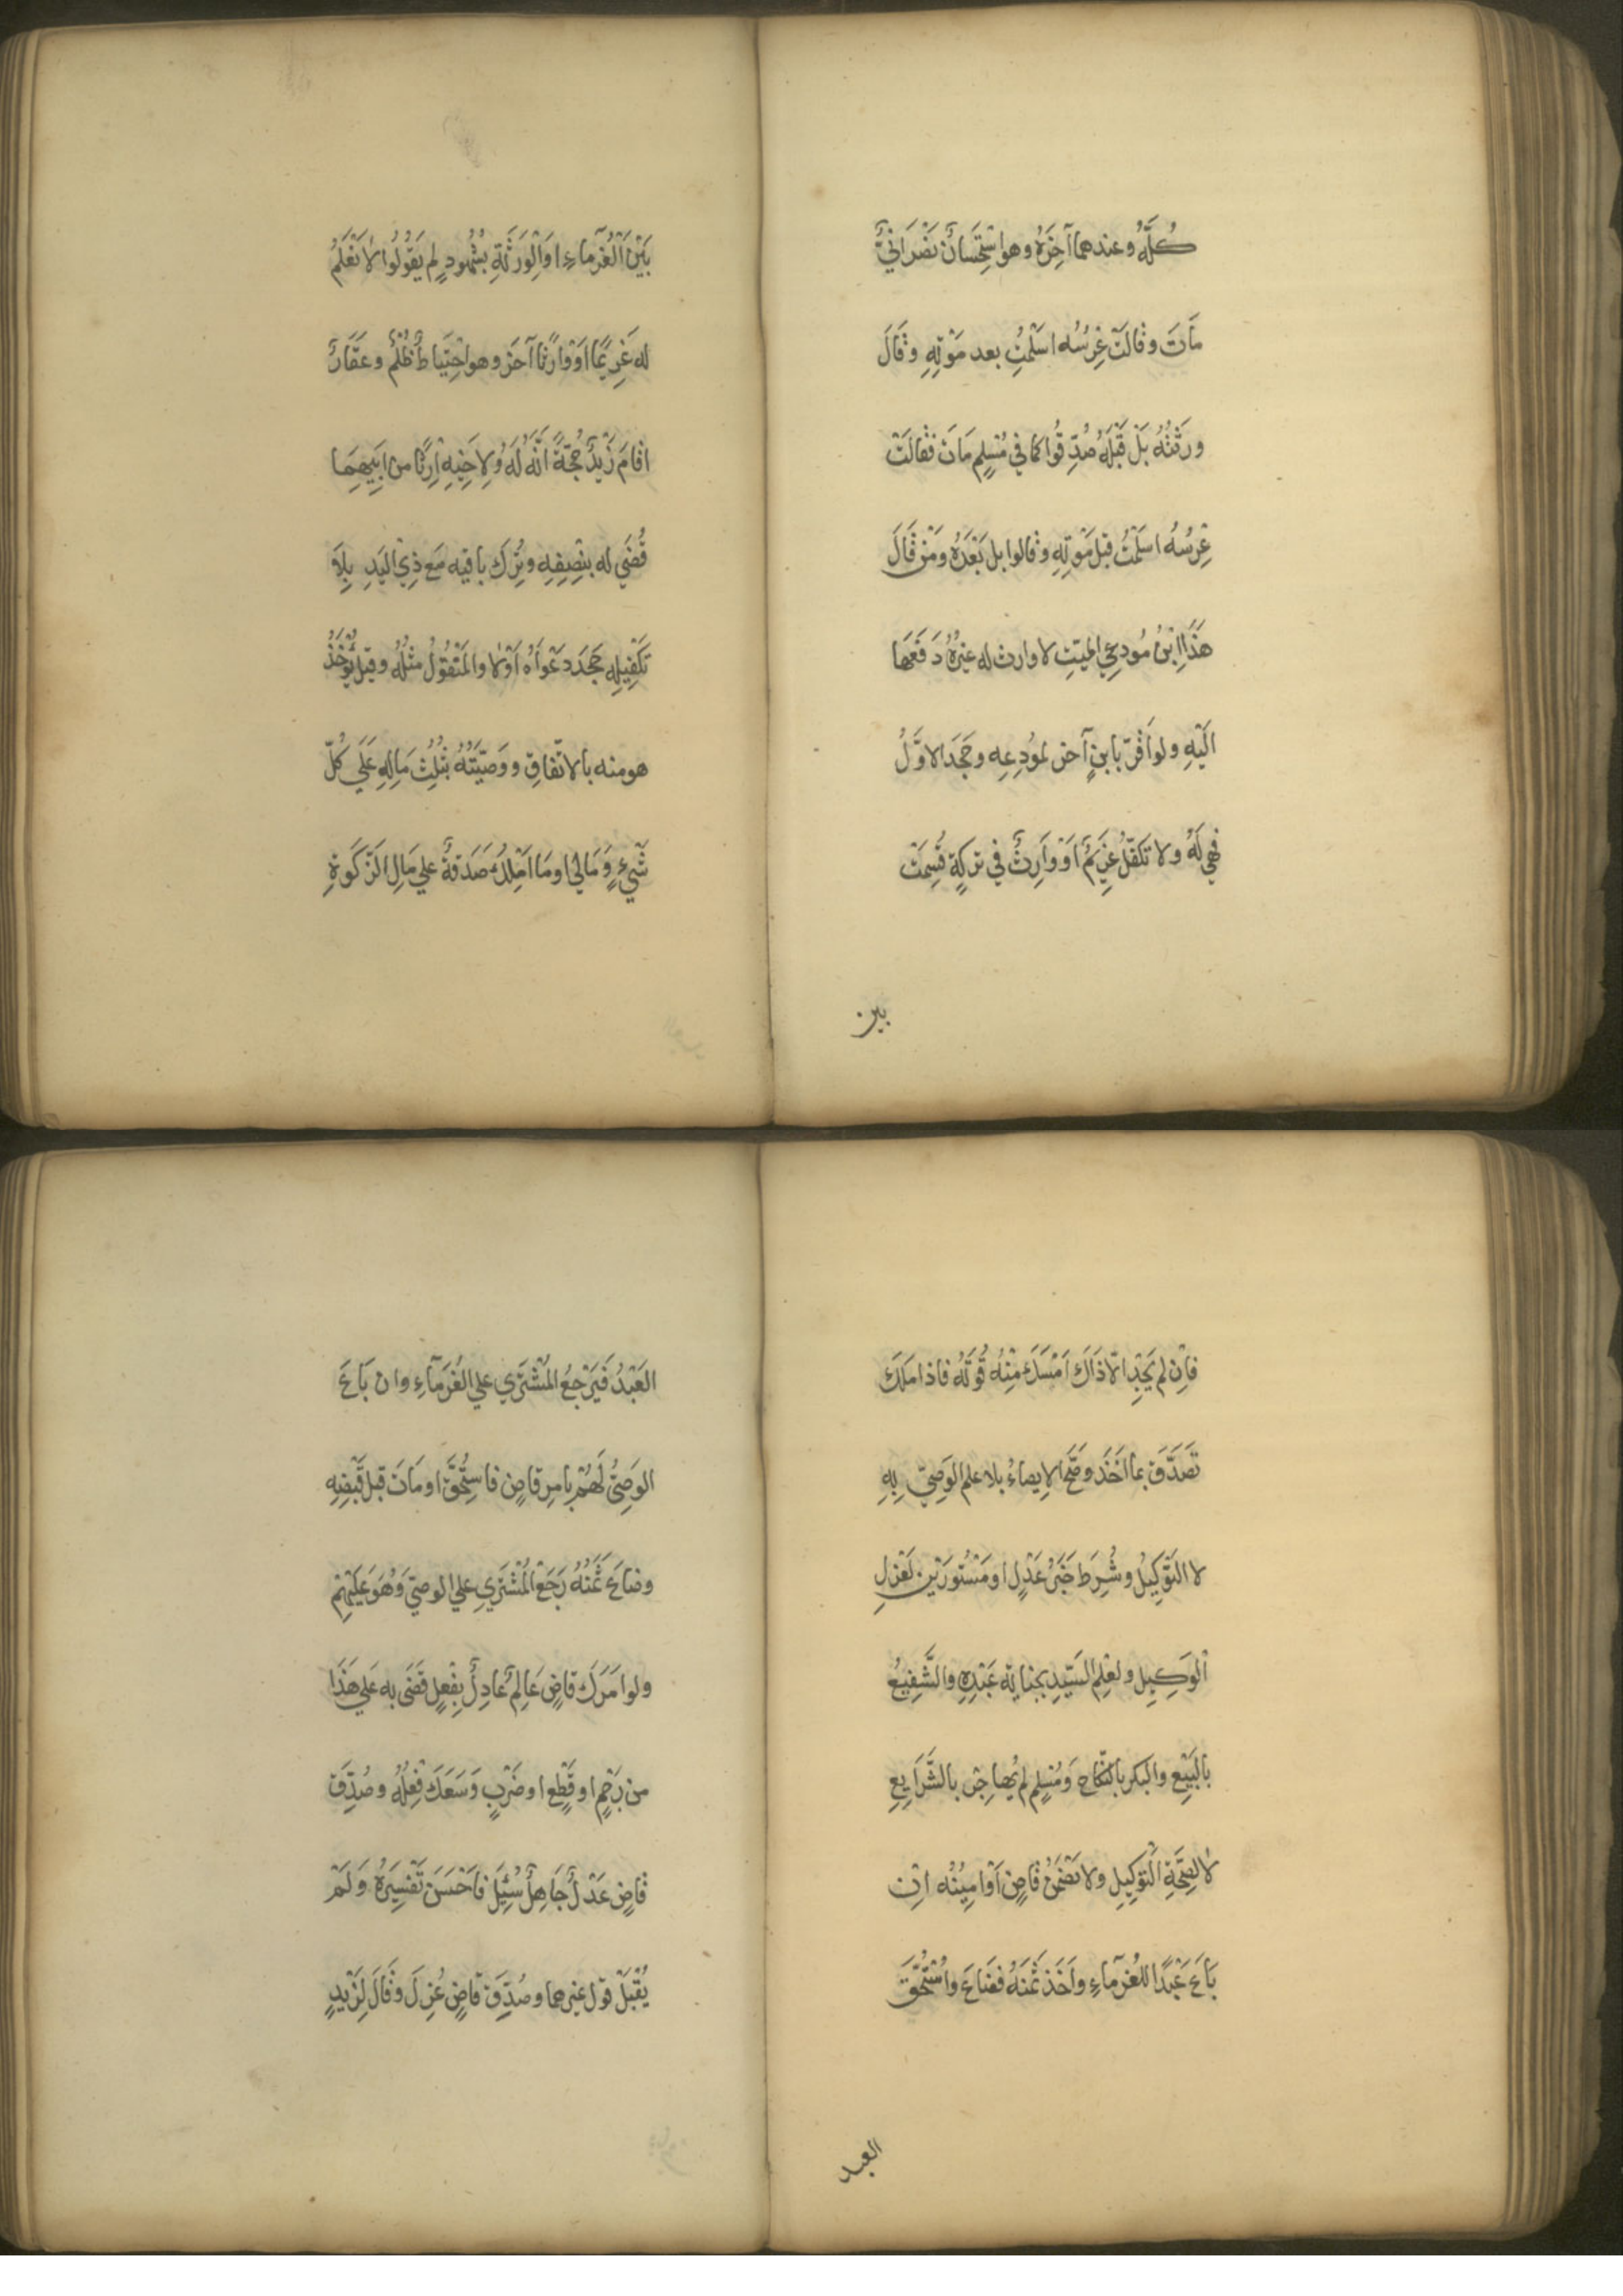 كُلُّهُ وعندهما آخِرُهُ وهو اسْتِحْسَانٌ نَصْرَانِيٌّ
مَاتَ وقَالَتْ عِرْسُه اسْلَمْتُ بعد مَوْتِهِ وقَالَ
ورَثَتُهُ بَلْ قَبْلَهُ صُدِّقُوا كما في مُسْلِمٍ مَاتَ فقالَتْ
عِرْسُهُ اسلَمْتُ قبل مَوْتِهِ وقالوا بل بَعْدَهُ ومَنْ قَالَ
هَذَا ابْنُ مُودِعِي الميّتِ لا وارث له غيرُهُ دَفَعَهَا
الَيْهِ ولو أَقَرّ بابنٍ آخر لمُودِعِه وجَحَدَ الاوَّلُ
فهي لَهُ ولا تَكَفُّلَ غَرِيمٌ اوْ وَارِثٌ في تركةٍ قُسِمَتْ
بين
بَيْنَ الْغُرَمَاءِ اوَ الْوَرَثَةِ بِشُهُودٍ لم يَقُولُوا لا نَعْلَمُ
له غَرِيمًا اوْ وارثًا آخَرَ وهو احْتِيَاطٌ ظُلْمٌ وعَقَارٌ
اقامَ زَيْدٌ حُجَّةً انَّهُ لَهُ ولِاَخِيْهِ ارْثًا من ابِيْهِمَا
قُضِيَ له بنِصْفِهِ وتُرِكَ باقيه مَعَ ذِي اليَدِ بِلَا
تَكْفِيلِه جَحَدَ دَعْوَاهُ اوْلا والمَنْقُولُ مثْلُهُ وقيل يُؤْخَذُ
هو منه بالاتّفاقِ ووَصِيَّتُهُ بثُلُثِ مَالِهِ عَلَى كُلِّ
شَيْءٍ وَمَالِي اومَا امْلِكُ صَدَقةٌ علي مَالِ الزَّكَوةِ
فاِنْ لم يَجِدْ الّا ذَاكَ امْسَكَ مِنْهُ قُوتَهُ فاذا مَلَكَ
تَصَدَّقَ بما اخَذَ وصَحَّ الايصاءُ بلا علم الوَصِيّ بِهِ
لا التَّوْكِيلُ وشُرِطَ خَبَرُ عَدْلٍ او مَسْتُورَيْنِ لعَزْلِ
الوَكِيلِ ولعِلْمِ السَّيِّدِ بجنايةِ عَبْدِهِ والشَّفِيعُ
بالبَيْعِ والبكر بالنّكاح ومُسْلِمٍ لم يُهَاجِرْ بالشَّرَايِعِ
لا لصِحَّةِ التَّوْكِيلِ ولا يَضْمَنُ قاضٍ أوْ امِينُهُ انْ
بَاعَ عَبْدًا للغُرَمَاءِ وأَخَذَ ثَمَنَهُ فضَاعَ واسْتُحِقَّ
العبد
العَبْدُ فَيَرْجِعُ المُشْتَرِي علي الغُرَمَاءِ وان بَاعَ
الوَصِيُّ لَهُمْ بامرِ قاضٍ فاستُحِقَّ او مَاتَ قبل قَبْضِهِ
وضَاعَ ثَمَنُهُ رَجَعَ المُشْتَرِي علي الوصيّ وَهُوَ عَلَيْهِمْ
ولو امَرَكَ قاضٍ عَالِمٌ عادِلٌ بفِعْلٍ قَضَى به عَلي هَذَا
من رَجْمٍ او قَطْعٍ او ضَرْبٍ وَسَعَكَ فِعْلُهُ وصُدِّقَ
قاضٍ عَدْلٌ جَاهِلٌ سُئِلَ فاَحْسَنَ تَفْسِيرَهُ وَلَمْ
يُقْبَلْ قول غيرهما وصُدِّقَ قاضٍ عُزِلَ وقَالَ لِزَيْدٍ